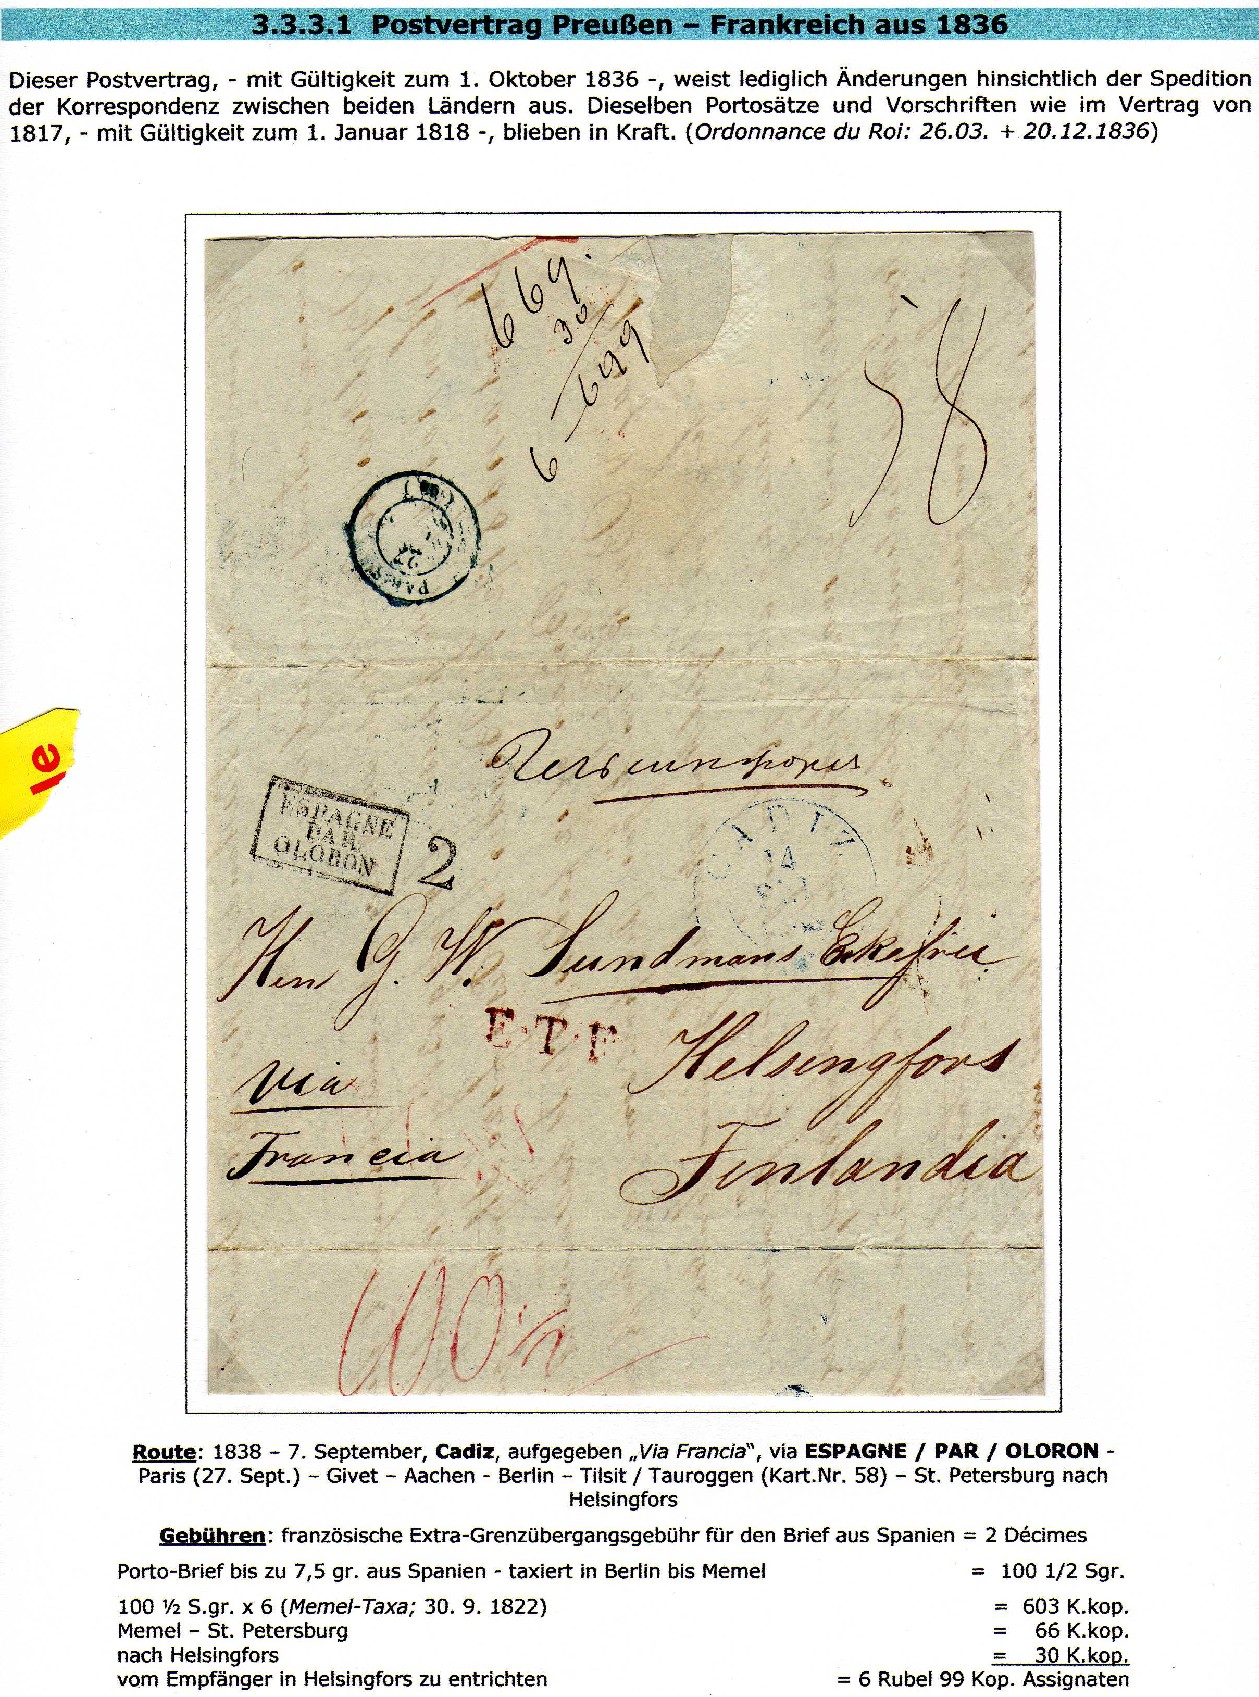 3.3.3.1 Postvertrag Preußen – Frankreich aus 1836
Dieser Postvertrag, - mit Gültigkeit zum 1. Oktober 1836 -, weist lediglich Änderungen hinsichtlich der Spedition
der Korrespondenz zwischen beiden Ländern aus. Dieselben Portosätze und Vorschriften wie im Vertrag von
1817, - mit Gültigkeit zum 1. Januar 1818 -, blieben in Kraft. (Ordonnance du Roi: 26.03. + 20.12.1836)
669.
30
699
6
58
PARIS
27
le
ESPAGNE
PAR
OLORON
2
CADIZ
14
Herr G. W. Sundmans
E.T.F
Helsingfors
Via
Francia
Finlandia
100 ½
Route: 1838 – 7. September, Cadiz, aufgegeben „Via Francia“, via ESPAGNE / PAR / OLORON -
Paris (27. Sept.) – Givet – Aachen - Berlin – Tilsit / Tauroggen (Kart.Nr. 58) – St. Petersburg nach
Helsingfors
Gebühren: französische Extra-Grenzübergangsgebühr für den Brief aus Spanien = 2 Décimes
Porto-Brief bis zu 7,5 gr. aus Spanien - taxiert in Berlin bis Memel = 100 1/2 Sgr.
100 ½ S.gr. x 6 (Memel-Taxa; 30. 9. 1822) = 603 K.kop.
Memel – St. Petersburg = 66 K.kop.
nach Helsingfors = 30 K.kop.
vom Empfänger in Helsingfors zu entrichten = 6 Rubel 99 Kop. Assignaten